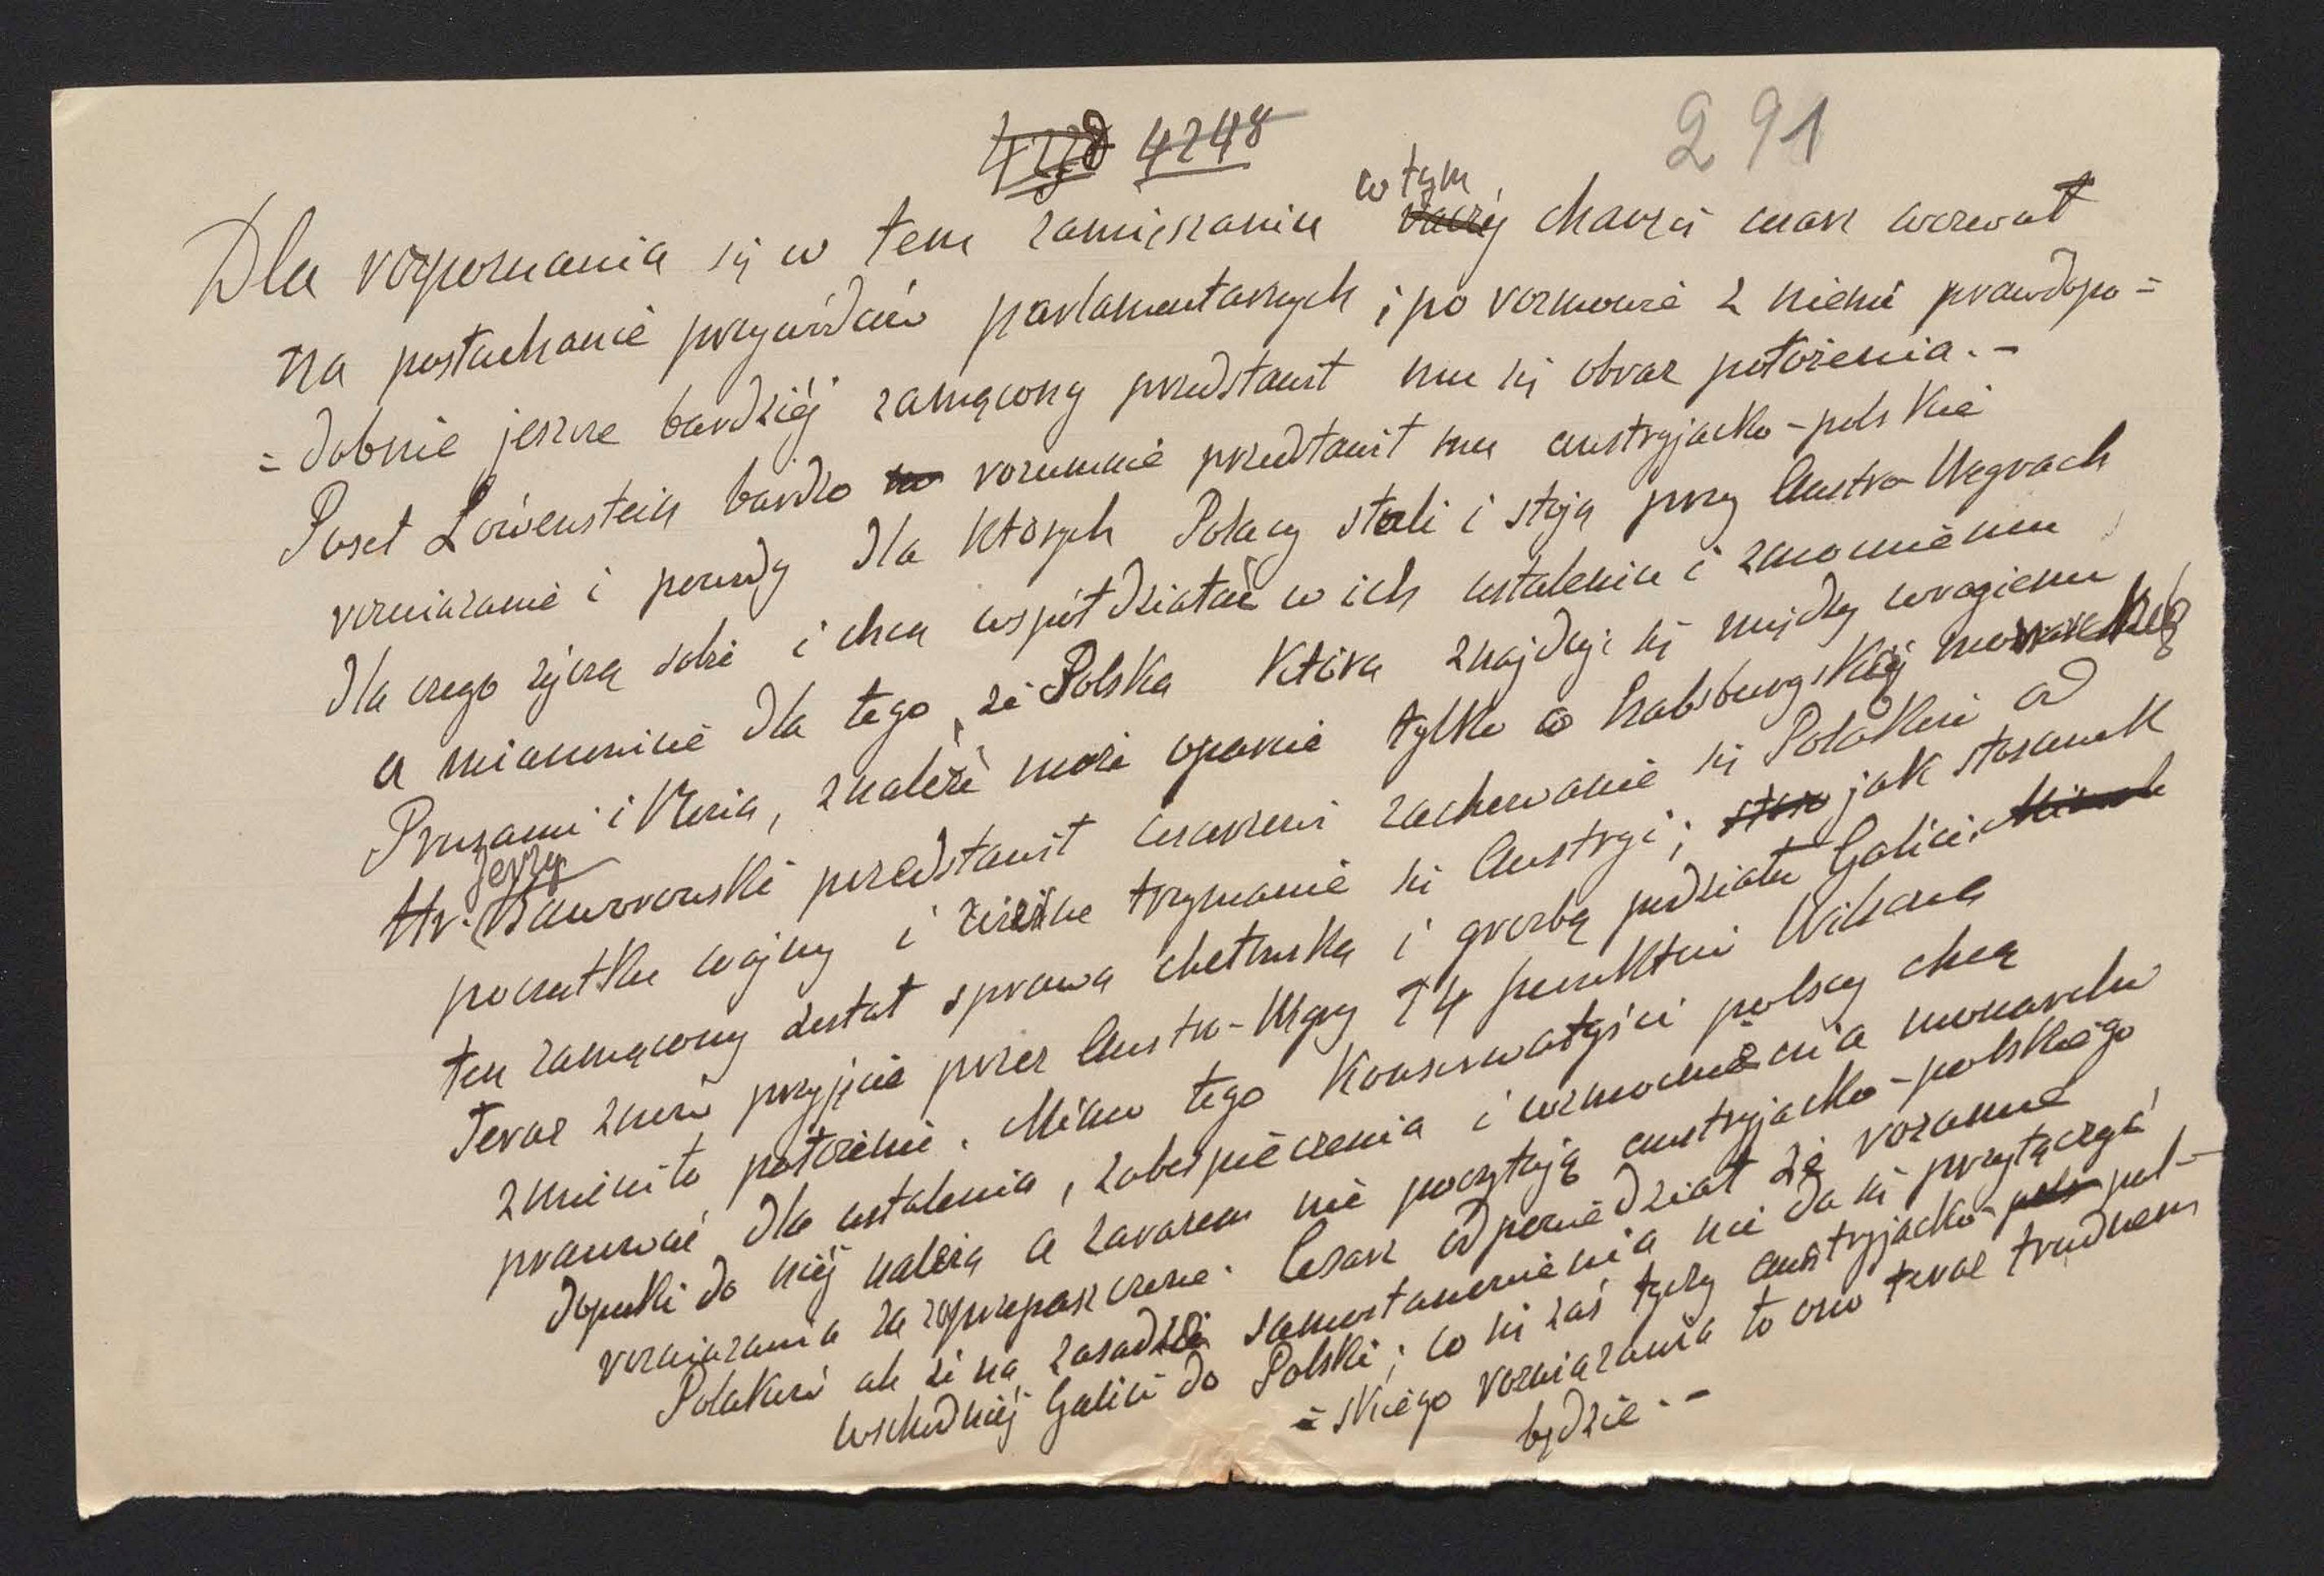 4238 4248
291
Dla rozpoznania się w tem zamięszaniu w tym chaosie cesarz wezwał
na posłuchanie przywódców parlamentarnych i po rozmowie z niemi prawdopo=
=dobnie jeszcze bardziéj zamącony przedstawił mu się obraz położenia.-
Poseł Löwenstein bardzo rozumnie przedstawił mu austryjacko-polskie
rozwiązanie i powody dla których Polacy stali i stoją przy Austro-Węgrach
dla czego życzą sobie i chcą współdziałać w ich ustaleniu i zmocnieniu
a mianowicie dla tego, że Polska która znajduje się między wrogiemi
Prusami i Rosią, znaleźć może oparcie tylko o habsburgskiéj monarchię
Hr. Jerzy Baworowski przedstawił cesarzowi zachowanie się Polaków od
początku wojny i ścisłe trzymanie się Austryi; jak stosunek
ten zamącony został sprawą chełmską i groźbą podziału Galicii.
Teraz znów przyjęcie przez Austro-Węgry 14 punktów Wilsona
zmieniło położenie. Mimo tego konserwatyści polscy chcą
pracować dla ustalenia, zabezpieczenia i wzmocnienia monarchii
dopóki do niéj należą a zarazem nie poczytają austryjacko-polskiego
rozwiązania za zaprzepaszczone. Cesarz odpowiedział że rozumie
Polaków ale że na zasadzie samostanowienia nie da się przyłączyć
wschodniéj Galicii do Polski; co się zaś tyczy austryjacko-pol-
=skiego rozwiązania to ono teraz trudnem
będzie.-